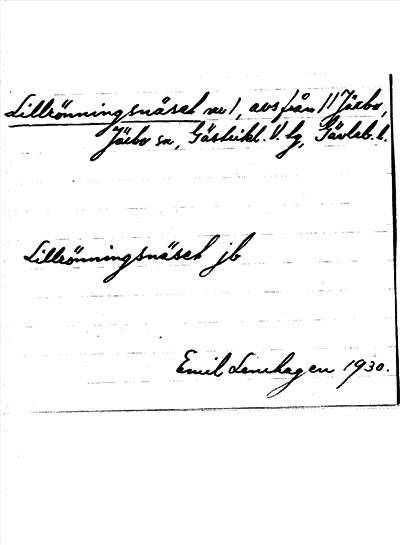 Lillrönningsnäset nr 1, avs från 11 Järbo,
Järbo sn, Gästrikl. V. tg, Gävleb. l.
Lillrönningsnäset jb
Emil Lenhagen 1930.